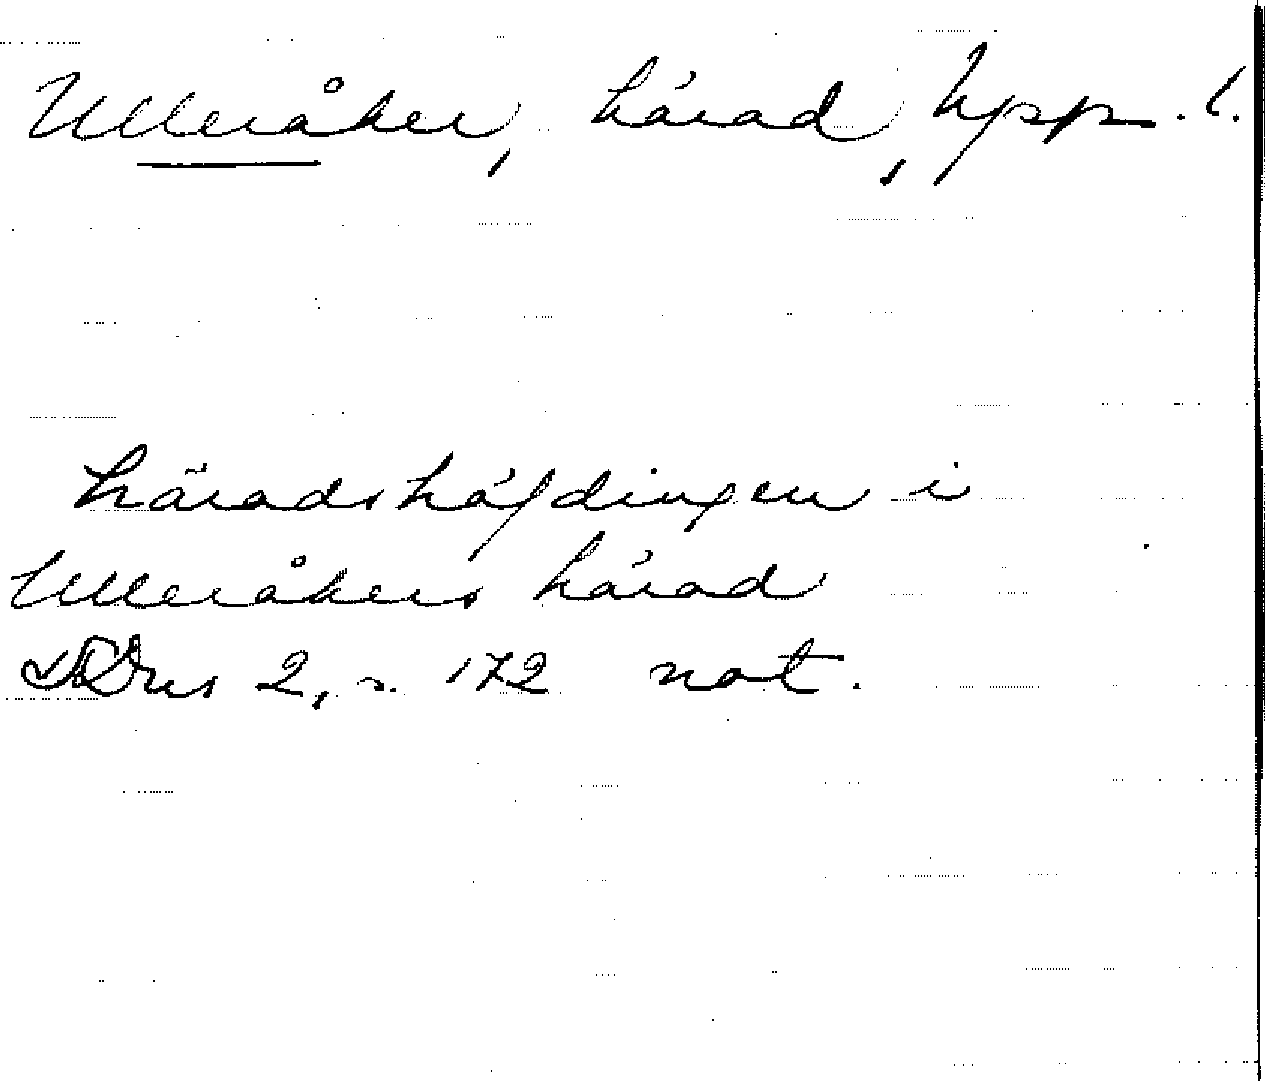 Ulleråker, härad, Upp. l.
häradshöfdingen i
Ulleråkers härad
2, s. 172 not.